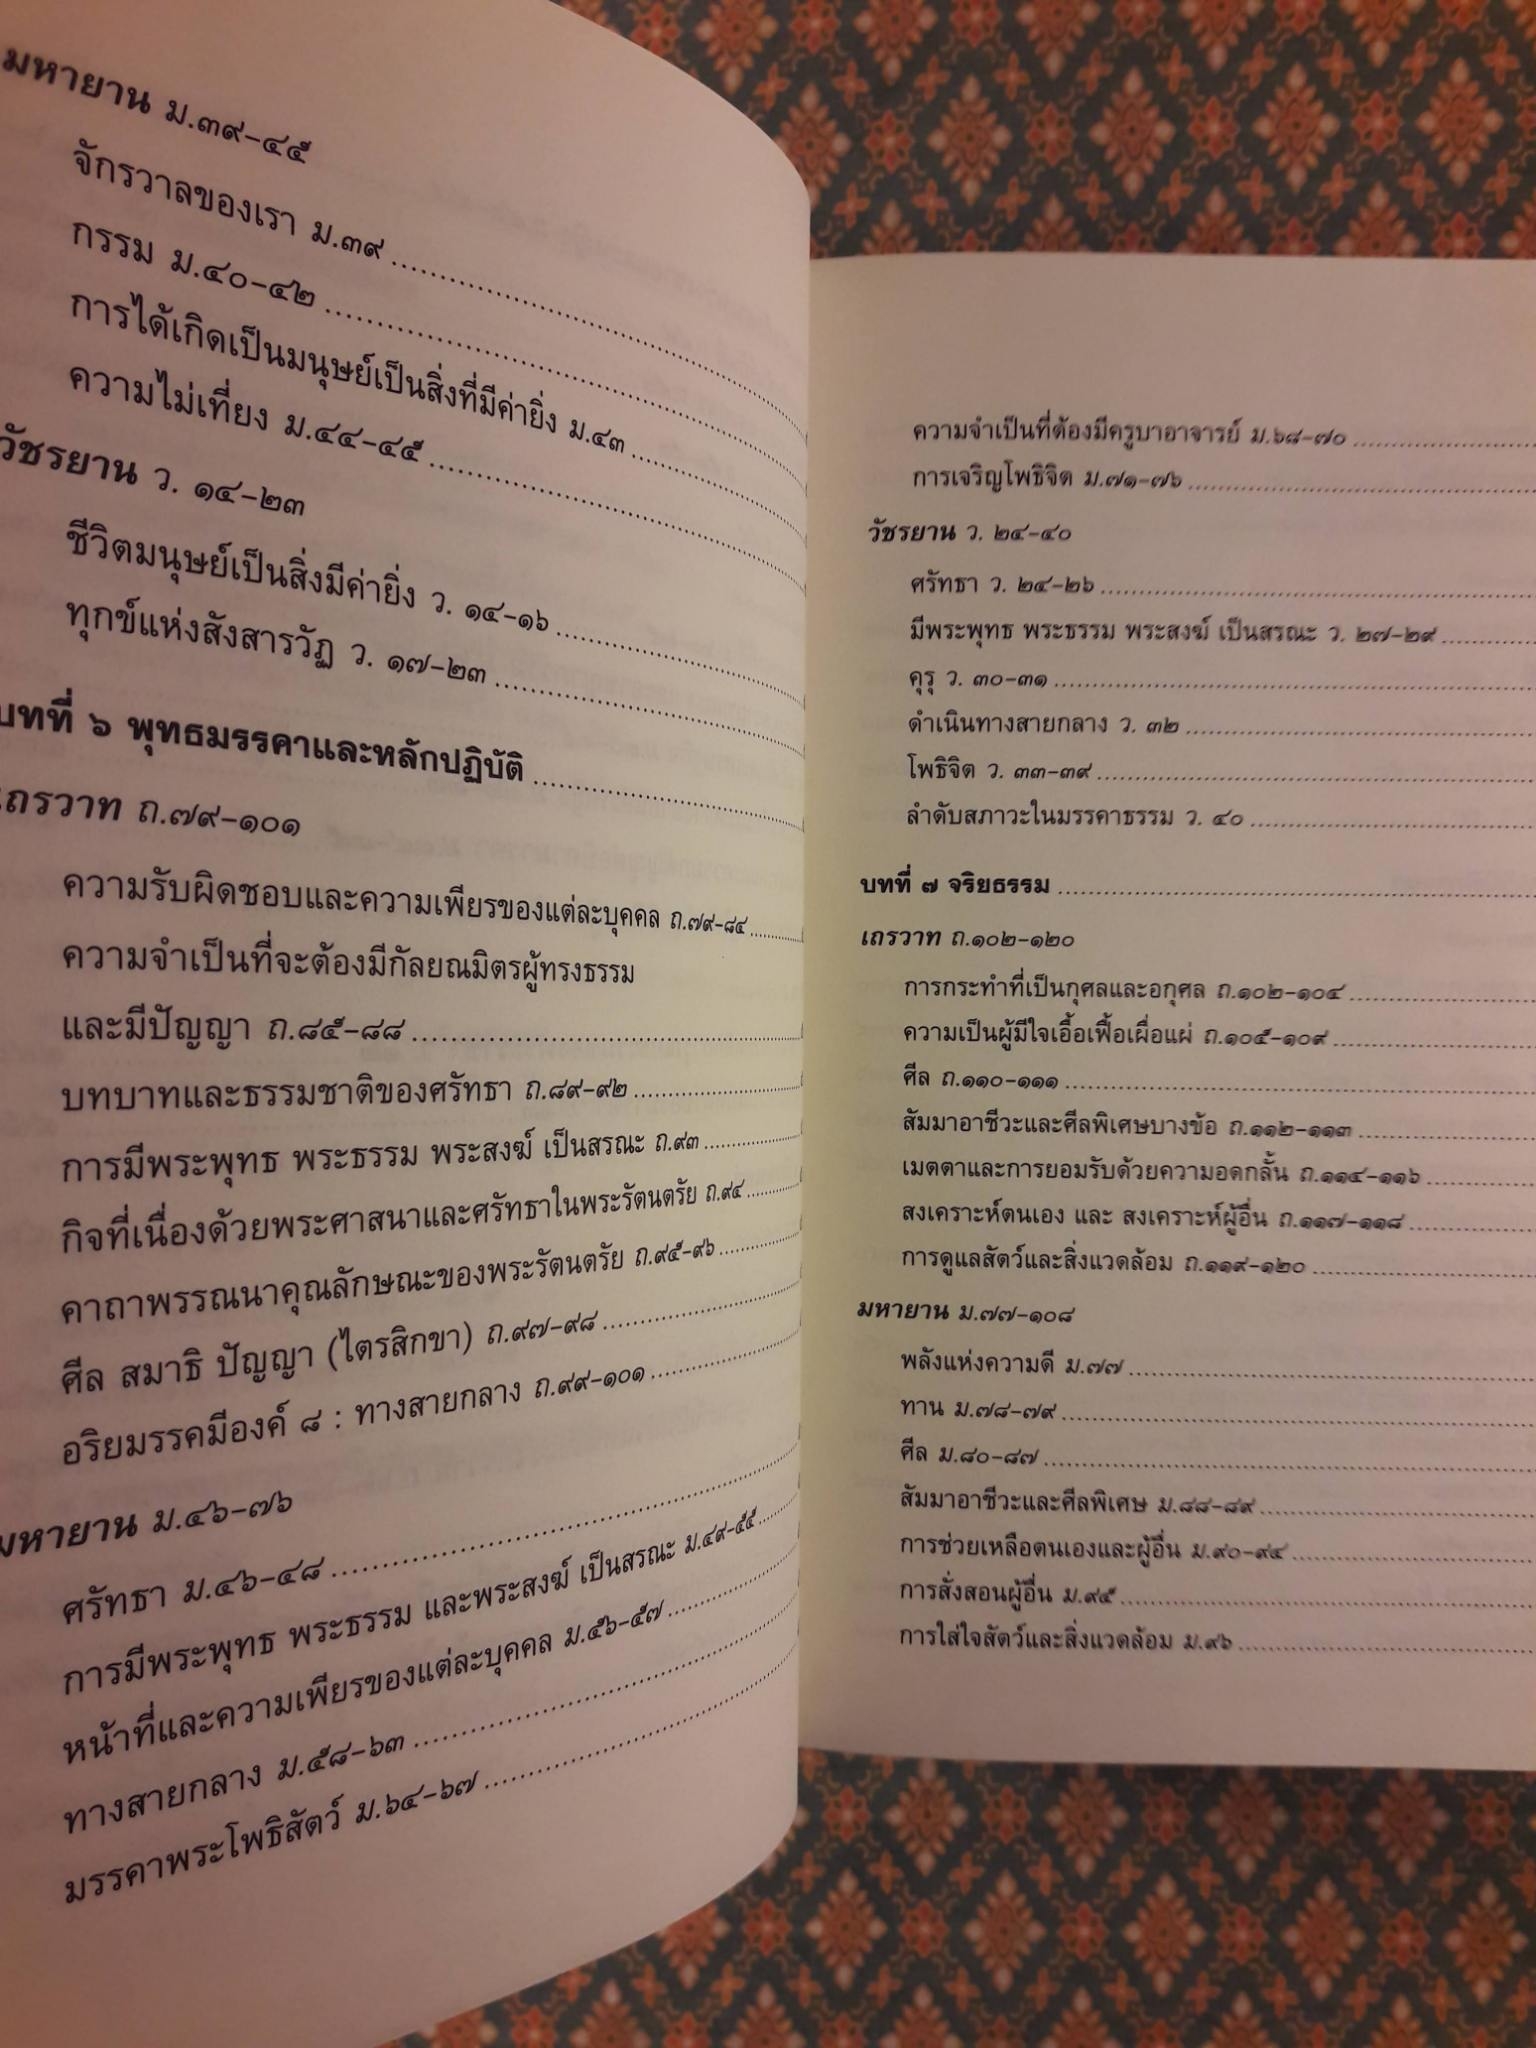 มหายาน ม.๓๙-๔๕
จักรวาลของเรา ม.๓๙
กรรม ม.๔๐-๔๒
การได้เกิดเป็นมนุษย์เป็นสิ่งที่มีค่ายิ่ง ม.๔๓
ความไม่เที่ยง ม.๔๔-๔๕
วัชรยาน ว. ๑๔-๒๓
ชีวิตมนุษย์เป็นสิ่งมีค่ายิ่ง ว. ๑๔-๑๖
ทุกข์แห่งสังสารวัฏ ว. ๑๗-๒๓
บทที่ ๖ พุทธมรรคาและหลักปฏิบัติ
เถรวาท ถ.๗๙-๑๐๑
ความรับผิดชอบและความเพียรของแต่ละบุคคล ถ.๗๙-๘๔
ความจำเป็นที่จะต้องมีกัลยณมิตรผู้ทรงธรรม
และมีปัญญา ถ.๘๕-๘๘
บทบาทและธรรมชาติของศรัทธา ถ.๘๙-๙๒
การมีพระพุทธ พระธรรม พระสงฆ์ เป็นสรณะ ถ.๙๓
กิจที่เนื่องด้วยพระศาสนาและศรัทธาในพระรัตนตรัย ถ.๙๔
คาถาพรรณนาคุณลักษณะของพระรัตนตรัย ถ.๙๕-๙๖
ศีล สมาธิ ปัญญา (ไตรสิกขา) ถ.๙๗-๙๘
อริยมรรคมีองค์ ๘ : ทางสายกลาง ถ.๙๙-๑๐๑
มหายาน ม.๔๖-๗๖
ศรัทธา ม.๔๖-๔๘
การมีพระพุทธ พระธรรม และพระสงฆ์ เป็นสรณะ ม.๔๙-๕๕
หน้าที่และความเพียรของแต่ละบุคคล ม.๕๖-๕๗
ทางสายกลาง ม.๕๘-๖๓
มรรคาพระโพธิสัตว์ ม.๖๔-๖๗
ความจำเป็นที่ต้องมีครูบาอาจารย์ ม.๖๘-๗๐
การเจริญโพธิจิต ม.๗๑-๗๖
วัชรยาน ว. ๒๔-๔๐
ศรัทธา ว. ๒๔-๒๖
มีพระพุทธ พระธรรม พระสงฆ์ เป็นสรณะ ว. ๒๗-๒๙
คุรุ ว. ๓๐-๓๑
ดำเนินทางสายกลาง ว. ๓๒
โพธิจิต ว. ๓๓-๓๙
ลำดับสภาวะในมรรคาธรรม ว. ๔๐
บทที่ ๗ จริยธรรม
เถรวาท ถ.๑๐๒-๑๒๐
การกระทำที่เป็นกุศลและอกุศล ถ.๑๐๒-๑๐๔
ความเป็นผู้มีใจเอื้อเฟื้อเผื่อแผ่ ถ.๑๐๕-๑๐๙
ศีล ถ.๑๑๐-๑๑๑
สัมมาอาชีวะและศีลพิเศษบางข้อ ถ.๑๑๒-๑๑๓
เมตตาและการยอมรับด้วยความอดกลั้น ถ.๑๑๔-๑๑๖
สงเคราะห์ตนเอง และ สงเคราะห์ผู้อื่น ถ.๑๑๗-๑๑๘
การดูแลสัตว์และสิ่งแวดล้อม ถ.๑๑๙-๑๒๐
มหายาน ม.๗๗-๑๐๘
พลังแห่งความดี ม.๗๗
ทาน ม.๗๘-๗๙
ศีล ม.๘๐-๘๗
สัมมาอาชีวะและศีลพิเศษ ม.๘๘-๘๙
การช่วยเหลือตนเองและผู้อื่น ม.๙๐-๙๔
การสั่งสอนผู้อื่น ม.๙๕
การใส่ใจสัตว์และสิ่งแวดล้อม ม.๙๖